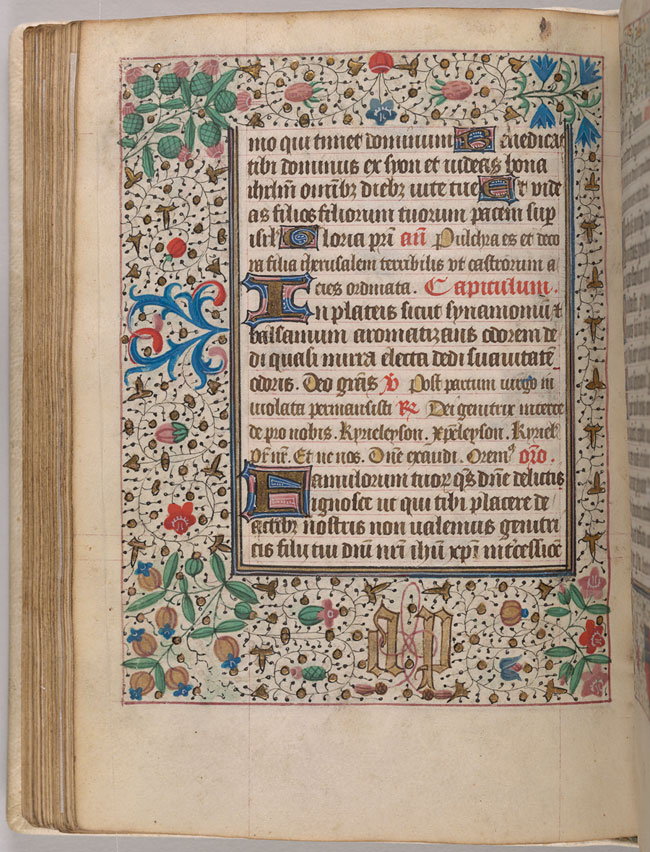 mo qui timet dominum Benedicat
tibi dominus ex syon et uideas bona
ihrlm omnibz diebz uite tue Et vide
as filios filiorum tuorum pacem sup
isrl Gloria pri an Pulchra es et deco
ra filia iherusalem terribilis vt castrorum a
cies ordinata. Capitulum.
In plateis sicut synamomū et
balsamum aromatizans odorem de
di quasi mirra electa dedi suauitatē
odoris. Deo gras v Post partum uirgo in
uiolata permansisti R Dei genitrix interce
de pro nobis. Kyrieleyson. xpeleyson. Kyriel
Pr nr. Et ne nos. Dne exaudi. Orem9 oro.
Famulorum tuor qs dne delictis
ignosce ut qui tibi placere de
actibz nostris non ualemus genitri
cis filii tui dni nri ihu xpi intcessiōe
a p